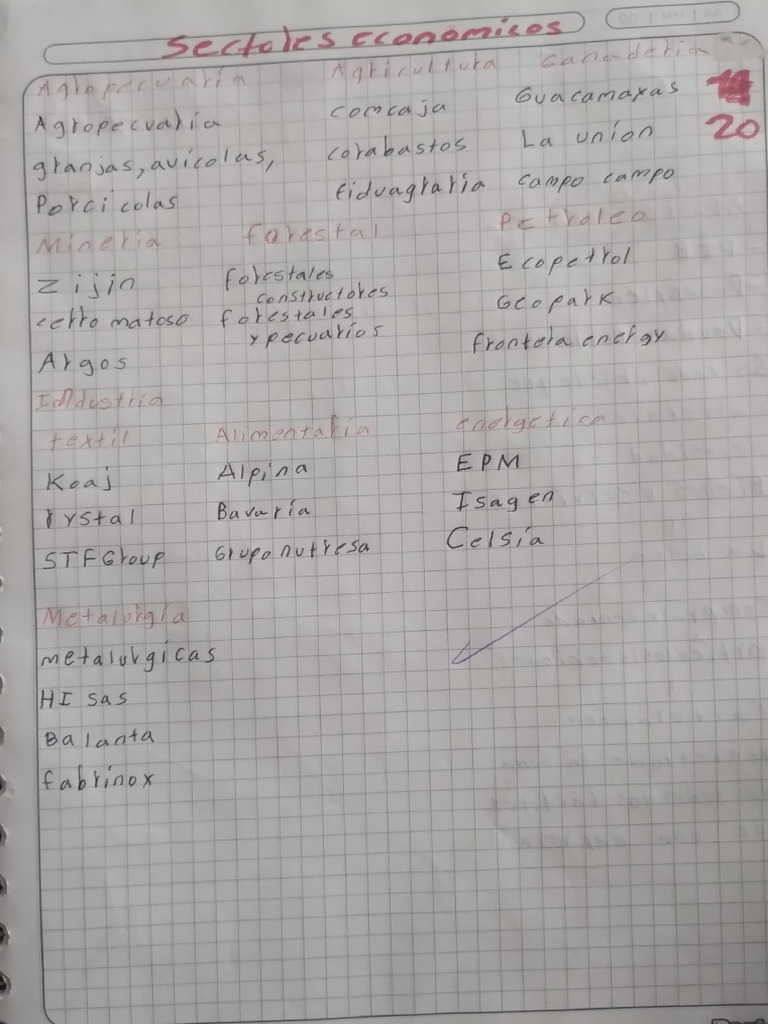 Sectores economicos
Agropecuaria Agricultura Ganaderia
Agropecuaria comcaja Guacamayas
granjas, avicolas, corabastos La union 20
Porcicolas fiduagraria campo campo
Mineria forestal Petroleo
Zijin forestales Ecopetrol
constructores
cerro matoso forestales Geopark
y pecuarios
Argos frontera energy
Industria
textil Alimentaria energetica
Koaj Alpina EPM
rystal Bavaria Isagen
STFGroup Grupo nutresa Celsia
Metalurgia
metalurgicas
HI sas
Balanta
fabrinox